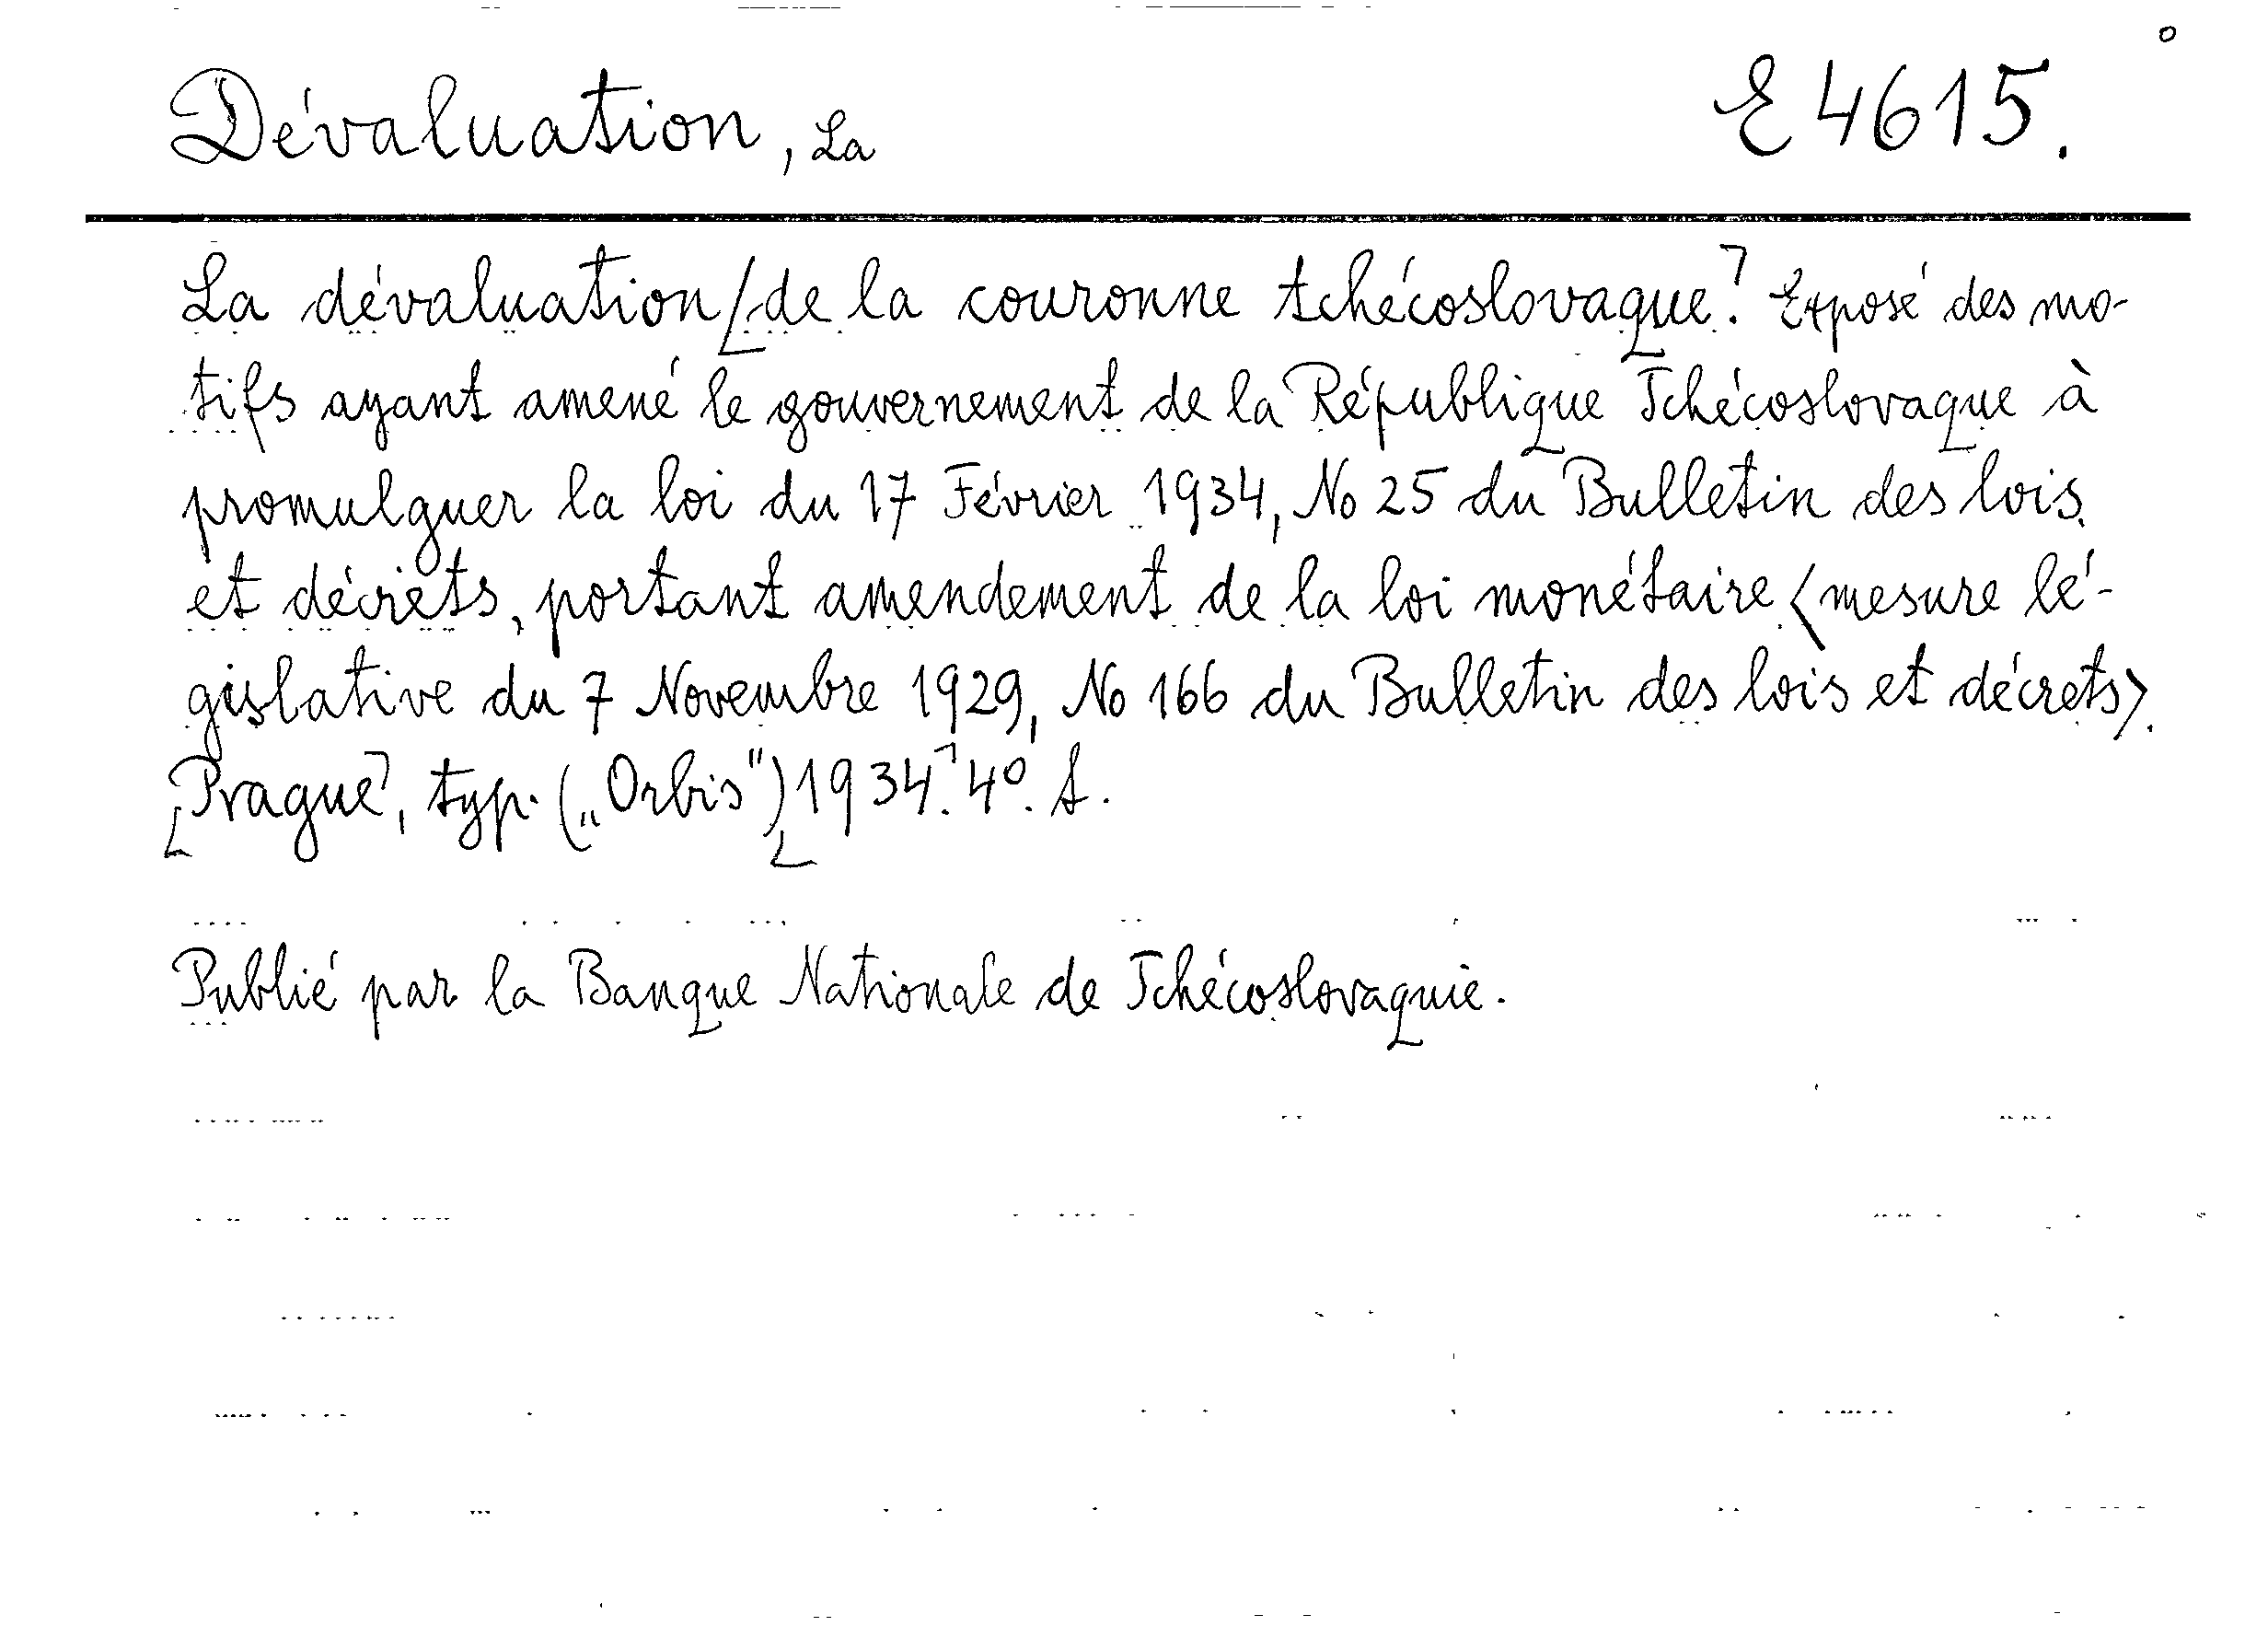 Dévaluation, La
E 4615.
La dévaluation [de la couronne tchécoslovaque]. Exposé des mo-
tifs ayant amené le gouvernement de la République Tchécoslovaque à
promulguer la loi du 17 Février 1934, No 25 du Bulletin des lois
et décrets, portant amendement de la loi monétaire (mesure lé-
gislative du 7 Novembre 1929, No 166 du Bulletin des lois et décrets).
[Prague], typ. („Orbis") [1934]. 4°.
Publié par la Banque Nationale de Tchécoslovaquie.